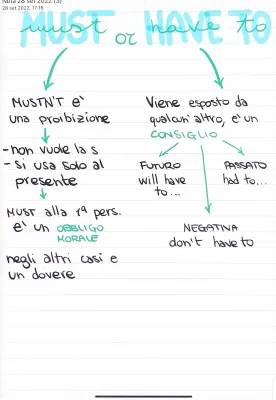 Nota 28 set 2022 (3)
28 set 2022, 17:16
MUST or HAVE TO
must have to
MUSTN'T E'
una proibizione
-non vuole la s
- si usa solo al
presente
MUST alla 1ª pers.
e' un OBBLIGO
MORALE
negli altri casi e
un dovere
Viene esposto da
qualcun'altro, e' un
CONSIGLIO
FUTURO
will have
to...
PASSATO
had to...
NEGATIVA
don't have to